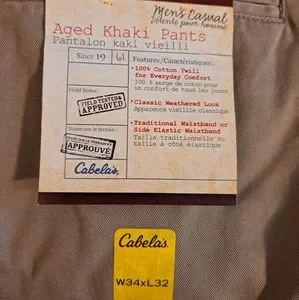 Men's Casual
Détente pour homme
Aged Khaki Pants
Pantalon kaki vieilli
Since 19 61
Features/Caractéristiques:
• 100% Cotton Twill
for Everyday Comfort
100 % serge de coton pour
un confort de tous les jours
Field Notes:
FIELD TESTED
APPROVED
• Classic Weathered Look
Apparence vieillie classique
Notes sur le terrain:
• Traditional Waistband or
Side Elastic Waistband
Taille traditionnelle ou
taille à côté élastique
APPROUVÉ
Cabela's
Cabela's
W34xL32